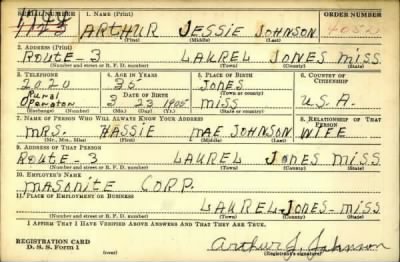 SERIAL NUMBER 1. NAME (Print) ORDER NUMBER
1144
1143 ARTHUR JESSIE JOHNSON
(First) (Middle) (Last)
2. ADDRESS (Print)
ROUTE-3 LAUREL JONES MISS.
(Number and street or R. F. D. number) (Town) (County) (State)
3. TELEPHONE 4. AGE IN YEARS 5. PLACE OF BIRTH 6. COUNTRY OF CITIZENSHIP
2020 35 JONES
Rural DATE OF BIRTH (Town or county)
Operaton 3 23 1905 MISS U.S.A.
(Mo.) (Day) (Yr.) (State or country)
7. NAME OF PERSON WHO WILL ALWAYS KNOW YOUR ADDRESS 8. RELATIONSHIP OF THAT PERSON
MRS. HASSIE MAE JOHNSON WIFE
(Mr., Mrs., Miss) (First) (Middle) (Last)
9. ADDRESS OF THAT PERSON
ROUTE-3 LAUREL JONES MISS.
(Number and street or R. F. D. number) (Town) (County) (State)
10. EMPLOYER'S NAME
MASONITE CORP.
11. PLACE OF EMPLOYMENT OR BUSINESS
LAUREL-JONES-MISS
(Number and street or R. F. D. number) (Town) (County) (State)
I AFFIRM THAT I HAVE VERIFIED ABOVE ANSWERS AND THAT THEY ARE TRUE.
REGISTRATION CARD
D. S. S. Form 1 (over) Arthur J. Johnson
(Registrant's signature)